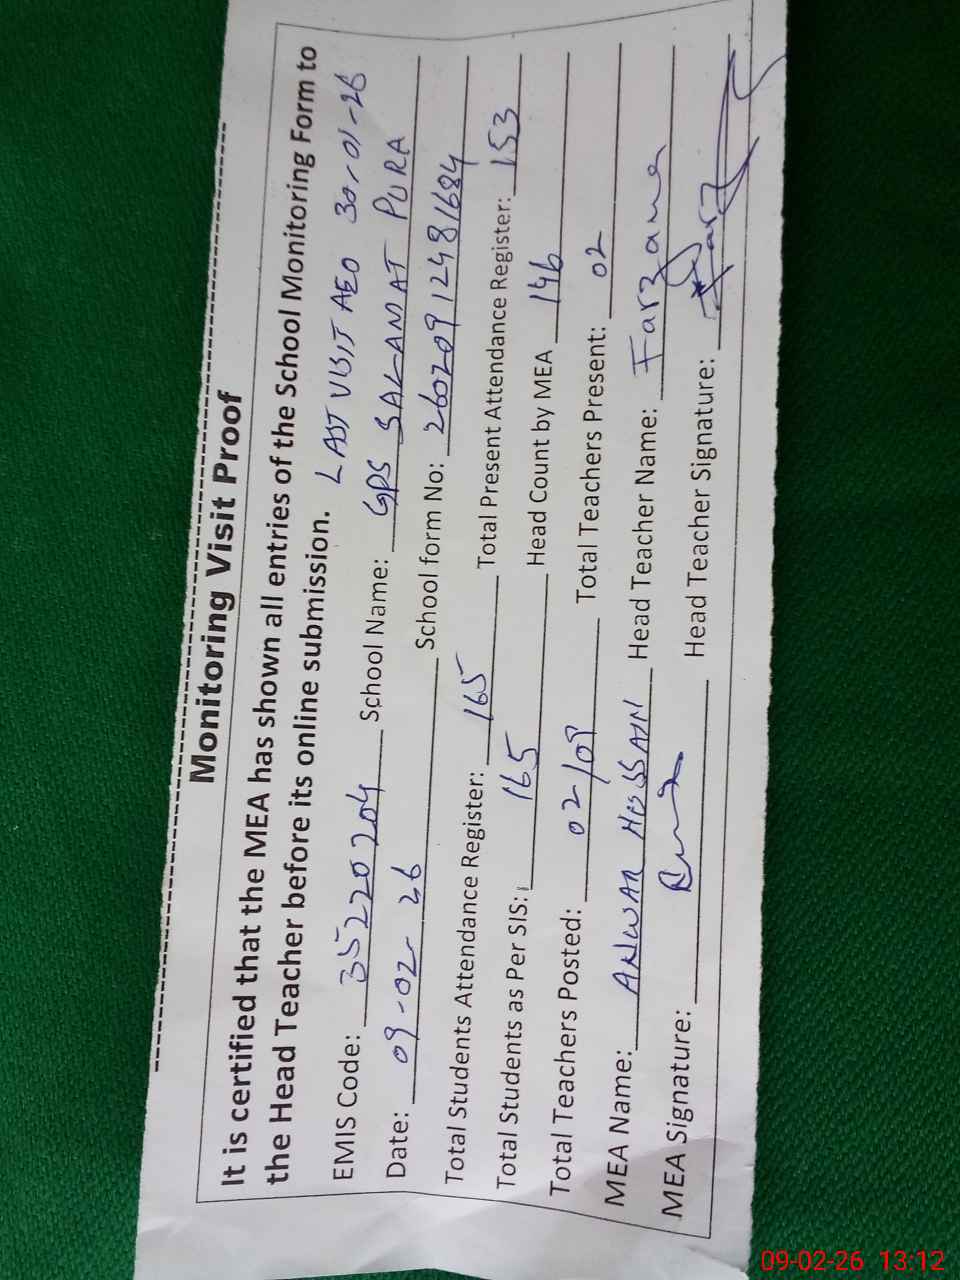 Monitoring Visit Proof
It is certified that the MEA has shown all entries of the School Monitoring Form to
the Head Teacher before its online submission. LAST VISIT AEO 30-01-26
EMIS Code: 35220204 School Name: GPS SALAMAT PURA
Date: 09-02-26 School form No: 26020912481684
Total Students Attendance Register: 165 Total Present Attendance Register: 153
Total Students as Per SIS: 165 Head Count by MEA 146
Total Teachers Posted: 02/09 Total Teachers Present: 02
MEA Name: ANWAR HUSSAIN Head Teacher Name: Farzana
MEA Signature: Head Teacher Signature:
09-02-26 13:12